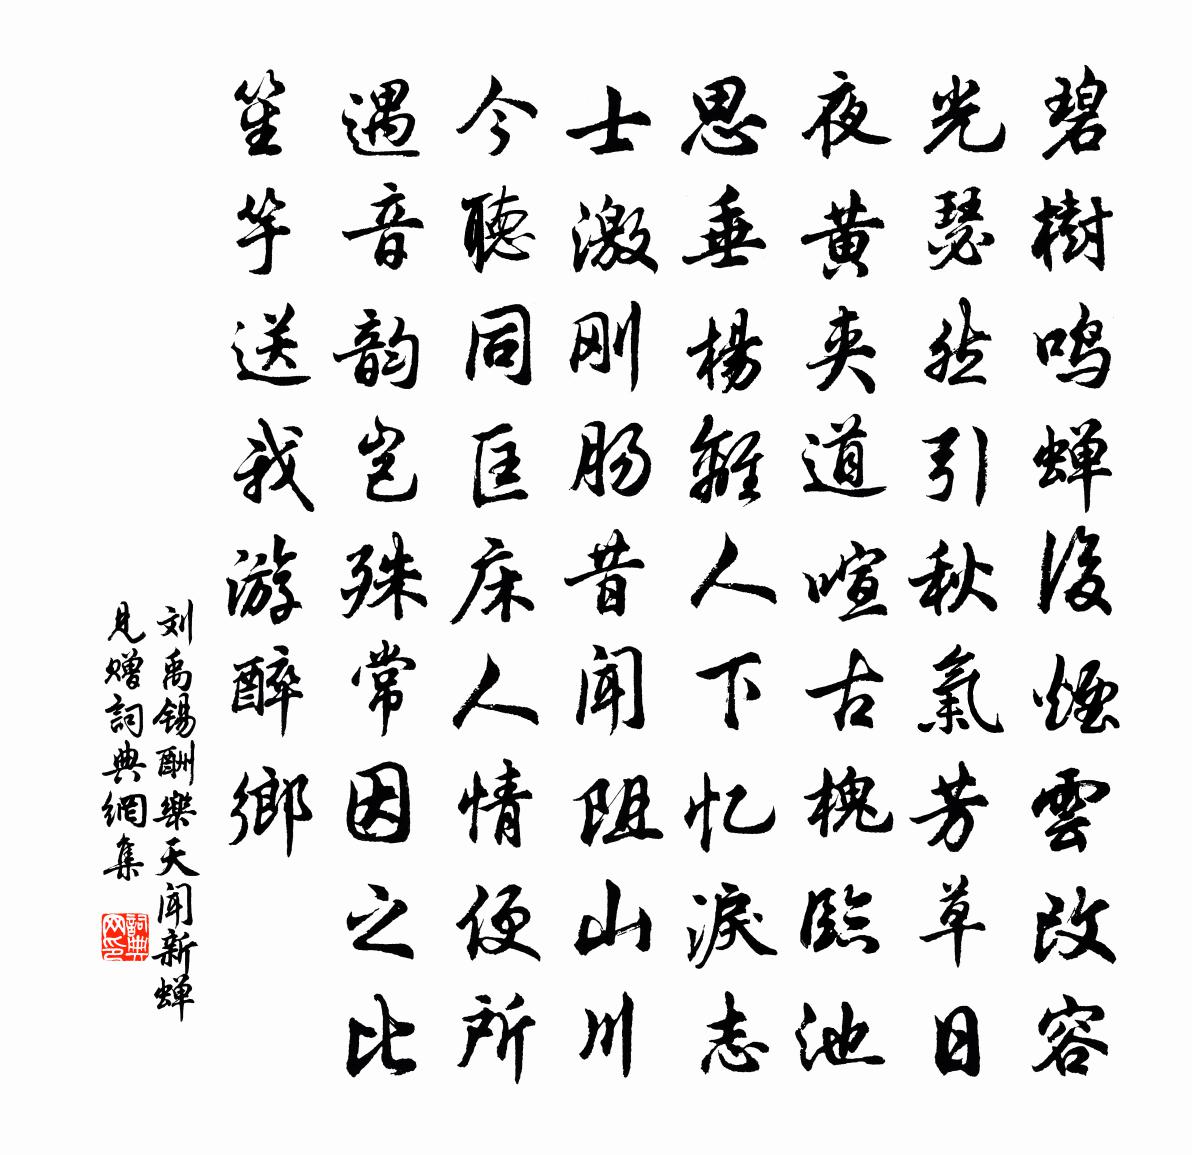 碧樹鳴蟬後煙雲改容
光瑟然引秋氣芳草日
夜黄夾道喧古槐臨池
思垂楊離人下忆淚志
士激刚肠昔聞阻山川
今聽同匡床人情便所
遇音韵岂殊常因之比
笙竽送我游醉鄉
刘禹锡酬樂天闻新蝉
見贈詞典網集
詞典网印